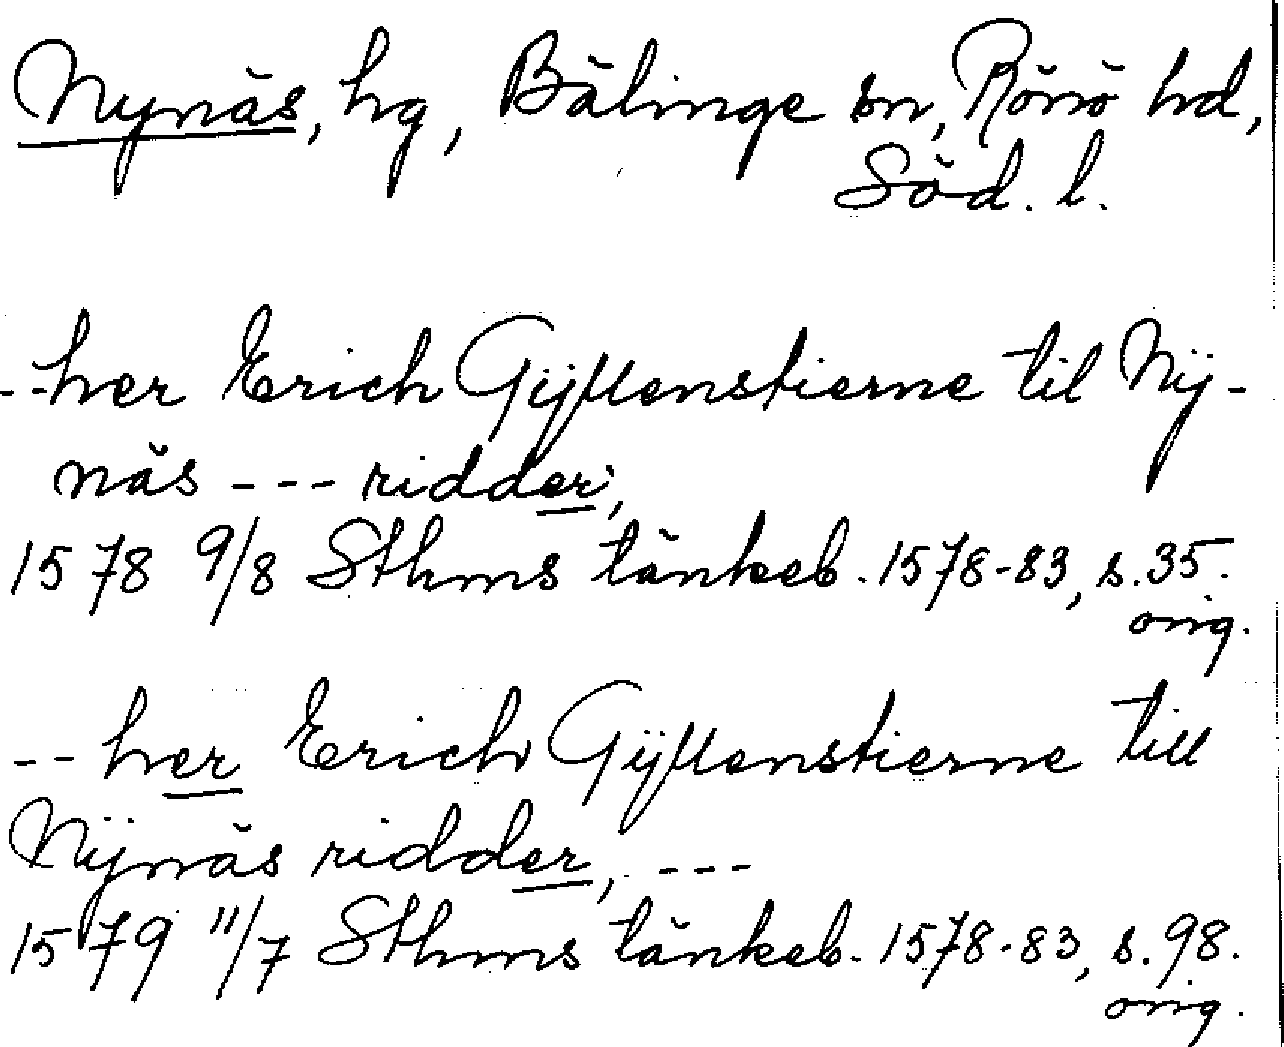 Nynäs, hg, Bälinge sn, Rönö hd,
Söd. l.
--her Erich Gÿllenstierne til Nÿ-
näs --- ridder,
1578 9/8 Sthms tänkeb. 1578-83, s. 35.
orig.
-- her Erich Gÿllenstierne till
Nÿnäs ridder, ---
1579 11/7 Sthms tänkeb. 1578-83, s. 98.
orig.